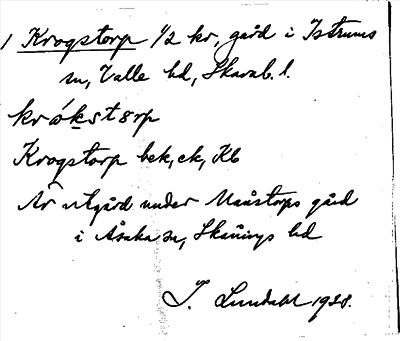 1 Krogstorp 1/2 kr, gård i Istrums
sn, Valle hd, Skarab. l.
krókst8rp
Krogstorp bek, ck, Kb
Är utgård under Månstorps gård
i Åsaka sn, Skånings hd
I. Lundahl 1928.